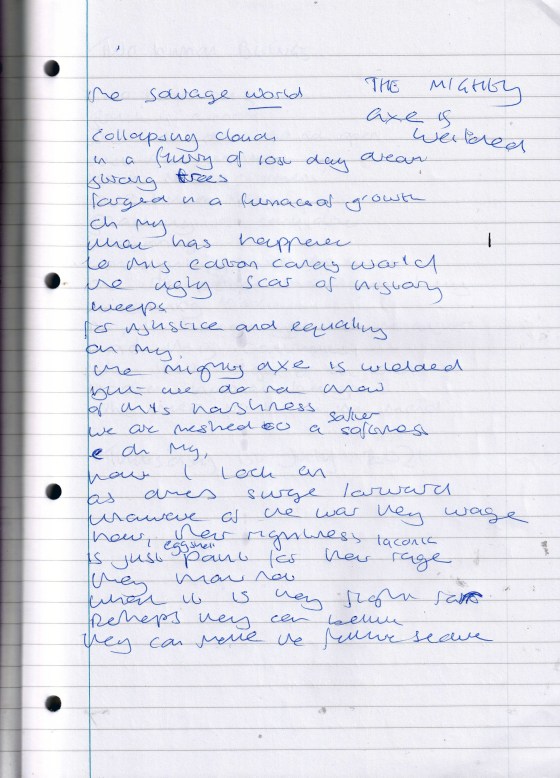 the savage world
THE MIGHTY
axe is
weilded
collapsing clouds
in a fury of lost day dream
strong trees
forged in a furnace of growth
oh my
what has happened
to this carbon candy world
the ugly scar of history
weeps
for injustice and equality
oh my,
the mighty axe is wielded
but we do not know
of its harshness
we are meshed to a safer safeness
oh my,
how I look on
as armies surge forward
unaware of the war they wage
how, their rightness laconic
is just eggshell paint for their rage
they know not
what it is they fight for
perhaps they can
they can make the future secure